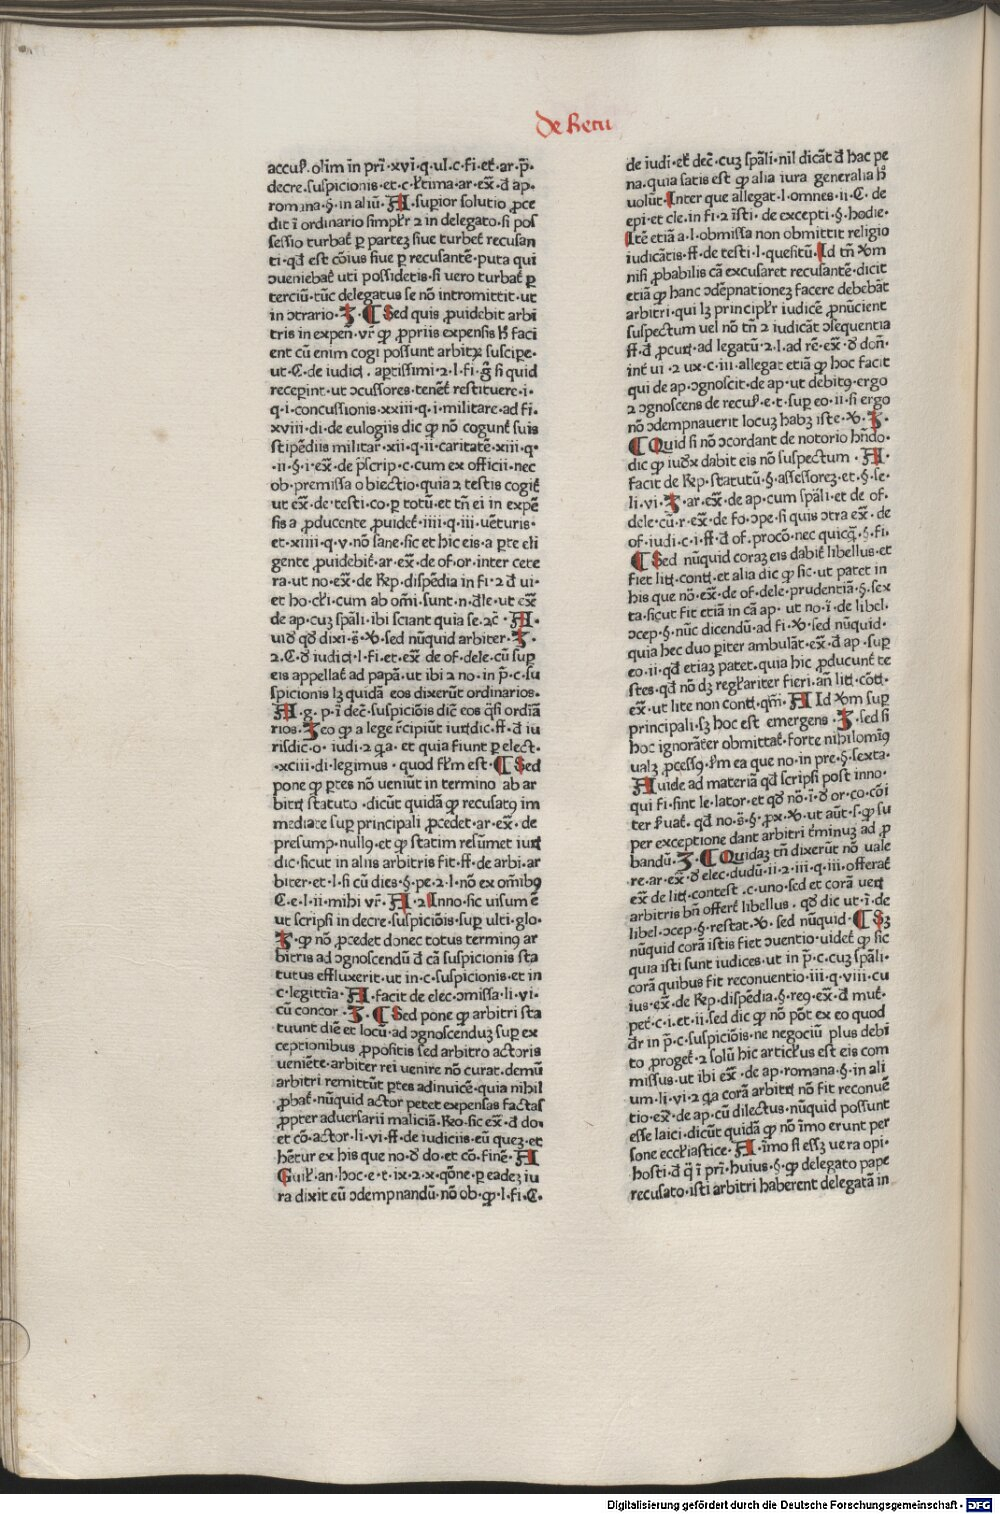 de Recu
accuſ. olim in pri̅·xvi·q·ul·c·fi·et·ar·p̅·
decre·ſuſpicionis·et·c·ł'tima·ar·ex̅·đ ap·
romana·§·in aliu̅·A·ſupior ſolutio ꝓce
dit i̅ ordinario ſimpłr ⁊ in delegato·ſi poſ
ſeſſio turbat' ꝑ partez ſiue turbet' recuſan
ti·qđ eſt co̅ius ſiue ꝑ recuſante̅·puta qui
ꝯueniebat' uti poſſidetis·ſi vero turbat' ꝑ
terciu̅·tu̅c delegatus ſe no̅ intromittit·ut
in ꝯtrario·Ʒ·¶ Sed quis ꝓuidebit arbi
tris in expen̅·vr̅ ꝙ ꝓpriis expenſis h̅ faci
ent cu̅ enim cogi poſſunt arbitꝝ ſuſcipe·
ut·C·de iudici·aptiſſimi·⁊·l·fi·g̅ ſi quid
recepint·ut ꝯcuſſores·tenet' reſtituere·i·
q·i·concuſſionis·xxiii·q·i·militare·ad fi·
xviii·di·de eulogiis dic ꝙ no̅ cogunt' ſuis
ſtipe̅diis militar·xii·q·ii·caritate̅·xiii·q·
·ii·§·i·ex̅·de p̅ſcrip·c·cum ex officii·nec
ob·premiſſa obiectio·quia ⁊ teſtis cogit'
ut ex̅·de·teſti·co·ꝑ totu̅·et tn̅ ei in expe̅
ſis a ꝓducente ꝓuidet'·iiii·q·iii·ue̅turis·
et·xiiii·q·v·no̅ ſane·ſic et hic eis·a ꝑte eli
gente ꝓuidebit'·ar·ex̅·de of·or·inter cete
ra·ut no·ex̅·de Reſp·diſpe̅dia in fi·⁊ đ ui·
et ho·cl'i·cum ab om̅i·ſunt·n·đle·ut ex̅
de ap·cuz ſpa̅li·ibi ſciant quia ſe·⁊c̅·A·
uiđ qđ dixi·s̅·℣·ſed nu̅quid arbiter·Ʒ·
⁊·C·đ iudici·l·fi·et·ex̅ de of·dele·cu̅ ſuꝑ
eis appellat' ad papa̅·ut ibi ⁊ no·in p̅·c·ſu
ſpicionis lꝫ quida̅ eos dixeru̅t ordinarios·
A·g·p·i̅ dec̅·ſuſpicio̅is dic̅ eos q̅ſi ordia̅
rios·Ʒeo ꝙ a lege r̅cipiu̅t iurdic·ff·đ iu
riſdic·o·iudi·⁊ q̅a·et quia fiunt ꝑ elect·
·xciii·di·legimus·quod fl'm eſt·¶ Sed
pone ꝙ ꝑtes no̅ veniu̅t in termino ab ar
bitris ſtatuto·dicu̅t quida̅ ꝙ recuſatꝰ im
mediate ſuꝑ principali ꝓcedet·ar·ex̅·de
preſump·nullꝰ·et ꝙ ſtatim reſu̅met iur
dic·ſicut in aliis arbitris fit·ff·de arbi·ar
biter·et·l·ſi cu̅ dies·§·pe·⁊·l·no̅ ex om̅ibꝰ
C·e·l·ii·mihi vr̅·A·⁊ Inno·ſic viſum e̅
ut ſcripſi in decre·ſuſpicio̅is·ſuꝑ ulti·glo·
Ʒ·ꝙ no̅ ꝓcedet donec totus terminꝰ ar
bitris ad ꝯgnoſcendu̅ đ ca̅ ſuſpicionis ſta
tutus effluxerit·ut in·c·ſuſpicionis·et in
c·legittia̅·A·facit de elec·ꝯmiſſa·li·vi·
cu̅ concor·Ʒ·¶ Sed pone ꝙ arbitri ſta
tuunt die̅ et locu̅·ad ꝯgnoſcenduꝫ ſuꝑ ex
ceptionibus ꝓpoſitis ſed arbitro actoris
ueniente·arbiter rei venire no̅ curat·demu̅
arbitri remittu̅t ꝑtes adinuice̅·quia nihil
ꝓbat'·nu̅quid actor petet expenſas factaſ
ꝓpter aduerſarii malicia̅·Reo·ſic ex̅·đ do·
et co̅·actor·li·vi·ff·de iudiciis·eu̅ quez·et
he̅tur ex his que no·đ do·et co̅·fine̅·A
Guil'·an·hoc·e·t·ix·⁊·x·qo̅ne·ꝑ eadeꝫ iu
ra dixit eu̅ ꝯdempnandu̅·no̅ ob·ꝙ·l·fi·C·
de iudi·et' dec̅·cuꝫ ſpa̅li·nil dica̅t đ hac pe
na·quia ſatis eſt ꝙ alia iura generalia h̅
uolu̅t·Inter que allegat·l·omnes·ii·C·de
epi·et cle·in fi·⁊ i̅ſti·de excepti·§·hodie·
Ite̅ etia̅ a·l·obmiſſa non obmittit religio
iudica̅tis·ff·de teſti·l·queſitu̅·Id tn̅ ℣m
niſi ꝓbabilis ca̅ excuſaret recuſante̅·dicit
etia̅ ꝙ hanc ꝯde̅pnationeꝫ facere debeba̅t
arbitri·qui lꝫ principl'r iudice̅ ꝓnu̅cient
ſuſpectum uel no̅ tn̅ ⁊ iudica̅t ꝯſequentia
ff·đ ꝓcur·ad legatu̅·⁊·l·ad re̅·ex̅·đ don̅·
int' ui·⁊ ux·c·iii·allegat etia̅ ꝙ hoc facit
qui de ap·ꝯgnoſcit·de ap·ut debitꝰ·ergo
⁊ ꝯgnoſcens de recuſ·e·t·ſuꝑ eo·ii·ſi ergo
no̅ ꝯdempnauerit locuꝫ habꝫ iſte·℣·Ʒ·
¶ Quid ſi no̅ ꝯcordant de notorio hn̅do·
dic ꝙ iuđx dabit eis no̅ ſuſpectum·A·
facit de Reſp·ſtatutu̅·§·aſſeſſoreꝫ·et·§·ſe·
li·vi·Ʒ·ar·ex̅·de ap·cum ſpa̅li·et de of·
dele·cu̅·r·ex̅·de fo·ꝯpe·ſi quis ꝯtra ex̅·de
of·iudi·c·i·ff·đ of·proco̅·nec quicq̅·§·fi·
¶ Sed nu̅quid coraꝫ eis dabit' libellus·et
fiet liti·conti·et alia dic ꝙ ſic·ut patet in
his que no̅·ex̅·de of·dele·prudentia̅·§·ſex
ta·ſicut fit etia̅ in ca̅ ap·ut no·i̅·de libel·
ꝯcep·§·nu̅c dicendu̅·ad fi·℣·ſed nu̅quid·
quia hec duo ꝑiter ambula̅t·ex̅·đ ap·ſuꝑ
eo·ii·qđ etiaꝫ patet·quia hic ꝓducunt' te
ſtes·qđ no̅ dꝫ regl'ariter fieri·an̅ liti·co̅t·
ex̅·ut lite non conti·qm̅·A Id ℣m ſuꝑ
principali·ſꝫ hoc eſt emergens·Ʒ·ſed ſi
hoc ignora̅ter obmittat'·forte nihilominꝰ
ualꝫ ꝓceſſꝰ·ſ'm ea que no·in pre·§·ſexta·
A uide ad materia̅ qđ ſcripſi poſt inno·
qui fi·ſint le·lator·et qđ no̅·i̅·đ or·co·co̅i
ter ſ'uat'·qđ no·s̅·§·ꝓx·℣·ut aut̅·ſ·ꝙ ſu
per exceptione dant arbitri t'minuꝫ ad ꝓ
bandu̅·Ʒ·¶ Quidaꝫ tn̅ dixeru̅t no̅ uale
re·ar·ex̅·đ elec·dudu̅·ii·⁊·iii·q·iii·offerat'
ex̅ de liti·conteſt·c·uno·ſed et cora̅ ueri
arbitris bn̅ offert' libellus·qđ dic ut·i̅·de
libel·ꝯcep·§·reſtat·℣·ſed nu̅quid·¶ Sꝫ
nu̅quid cora̅ iſtis fiet ꝯuentio·uidet' ꝙ ſic
quia iſti ſunt iudices·ut in p̅·c·cuꝫ ſpa̅li·
cora̅ quibus fit reconuentio·iii·q·viii·cu
ius·ex̅·de Reſp·diſpe̅dia·§·reꝰ·ex̅·đ mut'·
pet'·c·i·et·ii·ſed dic ꝙ no̅ po̅t ex eo quod
đr in p̅·c·ſuſpicio̅is·ne negociu̅ plus debi̅
to ꝓroget'·⁊ ſolu̅ hic articl'us eſt eis com
miſſus·ut ibi ex̅·de ap·romana·§·in ali
um·li·vi·⁊ q̅a cora̅ arbitri no̅ fit reconue̅
tio·ex̅·de ap·cu̅ dilectus·nu̅quid poſſunt
eſſe laici·dicu̅t quida̅ ꝙ no̅ i̅mo erunt per
ſone eccl'iaſtice·A·i̅mo ſi eſſꝫ uera opi·
hoſti·đ q̅ i̅ pri̅·huius·§·ꝙ delegato pape
recuſato·iſti arbitri haberent delegata̅ in
Digitalisierung gefördert durch die Deutsche Forschungsgemeinschaft - DFG